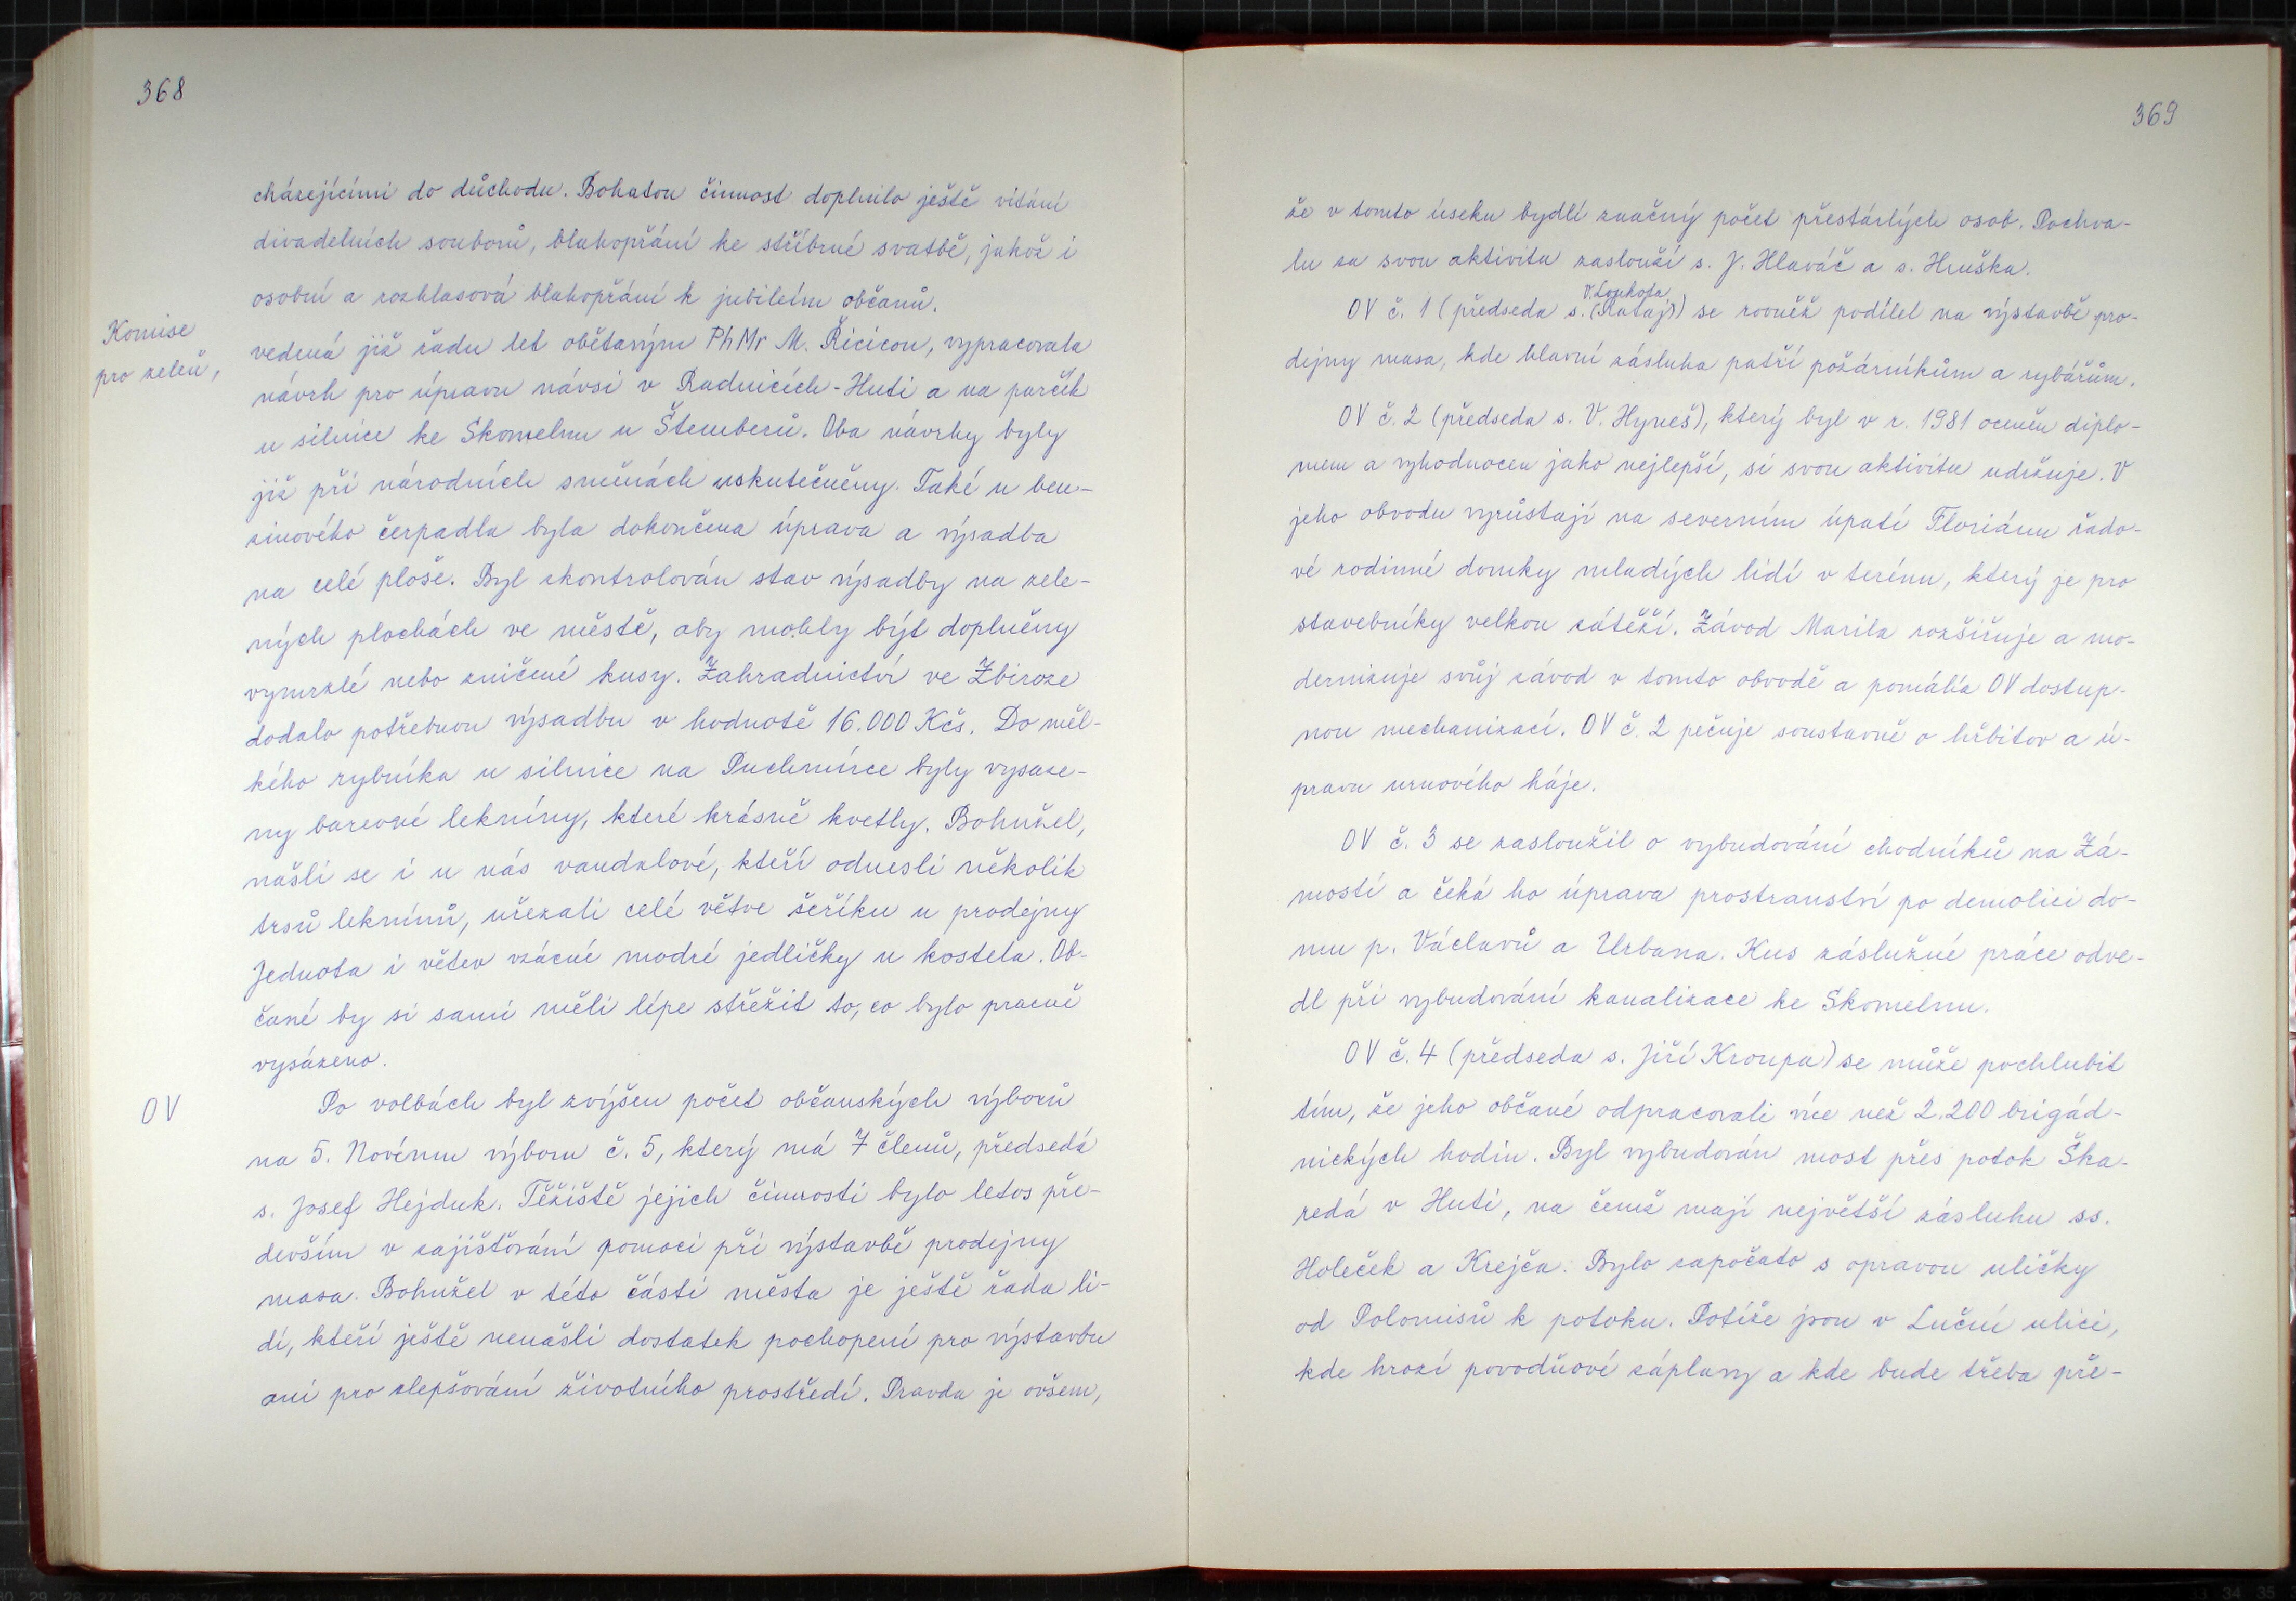 368
cházejícími do důchodu. Bohatou činnost doplnilo ještě vítání
divadelních souborů, blahopřání ke stříbrné svatbě, jakož i
osobní a rozhlasová blahopřání k jubileím občanů.
Komise
pro zeleň,
vedená již řadu let obětavým PhMr M. Řičicou, vypracovala
návrh pro úpravu návsi v Radnicích-Huti a na parčík
u silnice ke Skomelnu u Štemberů. Oba návrhy byly
již při národních směnách uskutečněny. Také u ben-
zinového čerpadla byla dokončena úprava a výsadba
na celé ploše. Byl zkontrolován stav výsadby na zele-
ných plochách ve městě, aby mohly být doplněny
vymrzlé nebo zničené kusy. Zahradnictví ve Zbiroze
dodalo potřebnou výsadbu v hodnotě 16.000 Kčs. Do měl-
kého rybníka u silnice na Puchmírce byly vysaze-
ny barevné lekníny, které krásně kvetly. Bohužel,
našli se i u nás vandalové, kteří odnesli několik
trsů leknínů, uřezali celé větve šeříku u prodejny
Jednota i větev vzácné modré jedličky u kostela. Ob-
čané by si sami měli lépe střežit to, co bylo pracně
vysázeno.
OV
Po volbách byl zvýšen počet občanských výborů
na 5. Novému výboru č. 5, který má 7 členů, předsedá
s. Josef Hejduk. Těžiště jejich činnosti bylo letos pře-
devším v zajišťování pomoci při výstavbě prodejny
masa. Bohužel v této části města je ještě řada li-
dí, kteří ještě nenašli dostatek pochopení pro výstavbu
ani pro zlepšování životního prostředí. Pravda je ovšem,
369
že v tomto úseku bydlí značný počet přestárlých osob. Pochva-
lu za svou aktivitu zaslouží s. J. Hlaváč a s. Hruška.
V. Loukota
OV č. 1 (předseda s. (Rataj)) se rovněž podílel na výstavbě pro-
dejny masa, kde hlavní zásluha patří požárníkům a rybářům.
OV č. 2 (předseda s. V. Hyneš), který byl v r. 1981 oceněn diplo-
mem a vyhodnocen jako nejlepší, si svou aktivitu udržuje. V
jeho obvodu vyrůstají na severním úpatí Floriánu řado-
vé rodinné domky mladých lidí v terénu, který je pro
stavebníky velkou zátěží. Závod Marila rozšiřuje a mo-
dernizuje svůj závod v tomto obvodě a pomáhá OV dostup-
nou mechanizací. OV č. 2 pečuje soustavně o hřbitov a ú-
pravu urnového háje.
OV č. 3 se zasloužil o vybudování chodníků na Zá-
mostí a čeká ho úprava prostranství po demolici do-
mu p. Václavů a Urbana. Kus záslužné práce odve-
dl při vybudování kanalizace ke Skomelnu.
OV č. 4 (předseda s. Jiří Kroupa) se může pochlubit
tím, že jeho občané odpracovali více než 2.200 brigád-
nických hodin. Byl vybudován most přes potok Ška-
redá v Huti, na čemž mají největší zásluhu ss.
Holeček a Krejča. Bylo započato s opravou uličky
od Polomisů k potoku. Potíže jsou v Luční ulici,
kde hrozí povodňové záplavy a kde bude třeba pře-